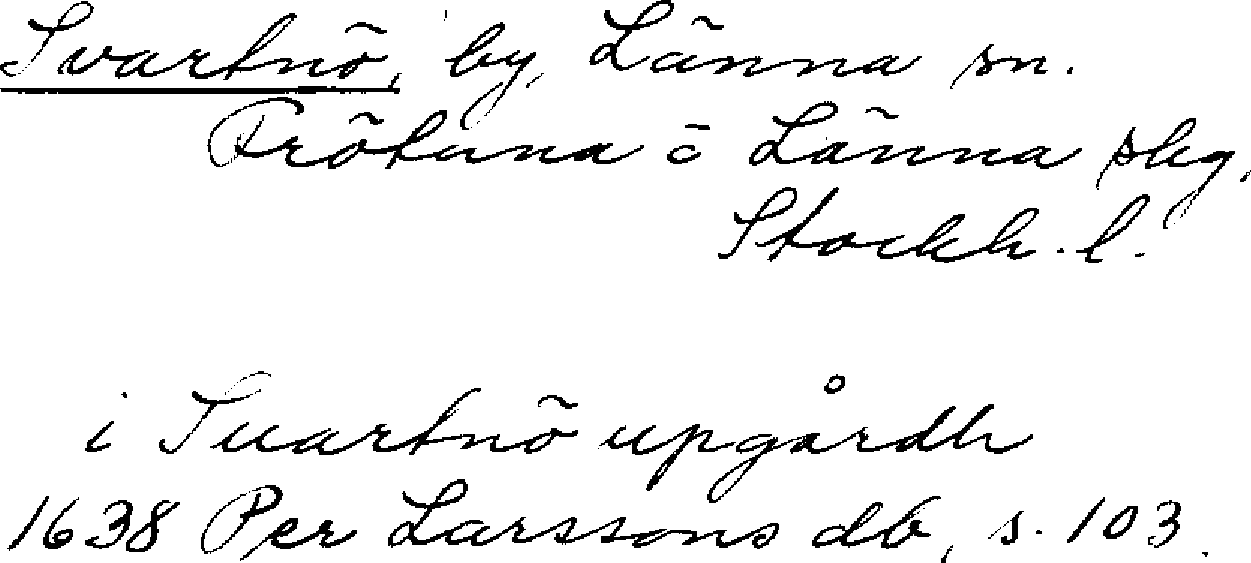 Svartnö, by, Länna sn.
Frötuna o Länna skg,
Stockh. l.
i Suartnö upgårdh
1638 Per Larssons db, s. 103.